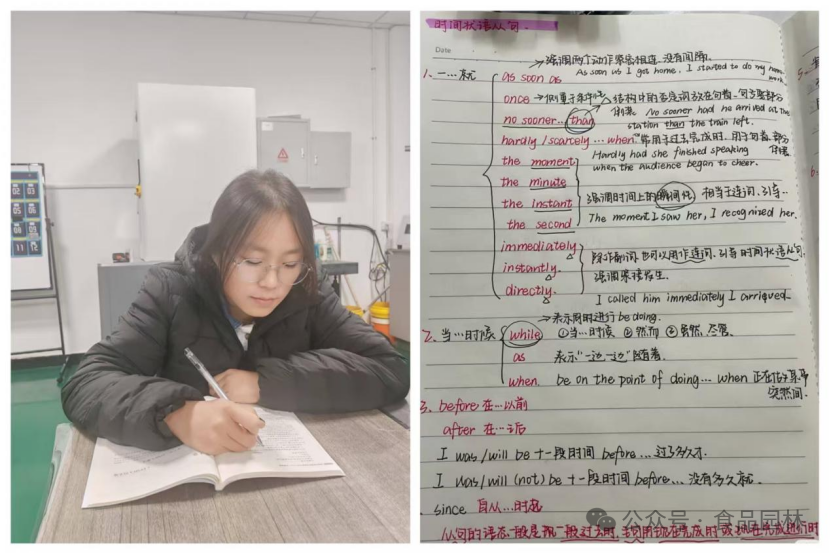 时间状语从句.
Date
强调两个动作紧密相连、没有间隔.
1. 一…就 as soon as As soon as I got home, I started to do my homework
once
结构中的否定词放在句首、句子要部分
no sooner...than 倒装. No sooner had he arrived at the
station than the train left.
hardly/scarcely...when 常用于过去完成时.用于句首、部分倒装
Hardly had she finished speaking
the moment when the audience began to cheer.
the minute
the instant 强调时间上的瞬间性. 相当于连词、引导…
the second The moment I saw her, I recognized her.
immediately 除作副词、也可以用作连词、引导时间状语从句.
instantly. 强调紧接发生.
directly. I called him immediately I arriqved.
表示同时进行 be doing.
2. 当…时候 while ①当…时候 ②然而 ③虽然、尽管.
as 表示“一边…一边”随着.
when. be on the point of doing...when 正在做某事
突然间.
3. before 在…以前
after 在…之后
I was/will be +一段时间 before...过了多久才.
I was/will (not) be +一段时间 before...没有多久就.
since 自从…时起
公众号·食品园林
从句的语态一般是